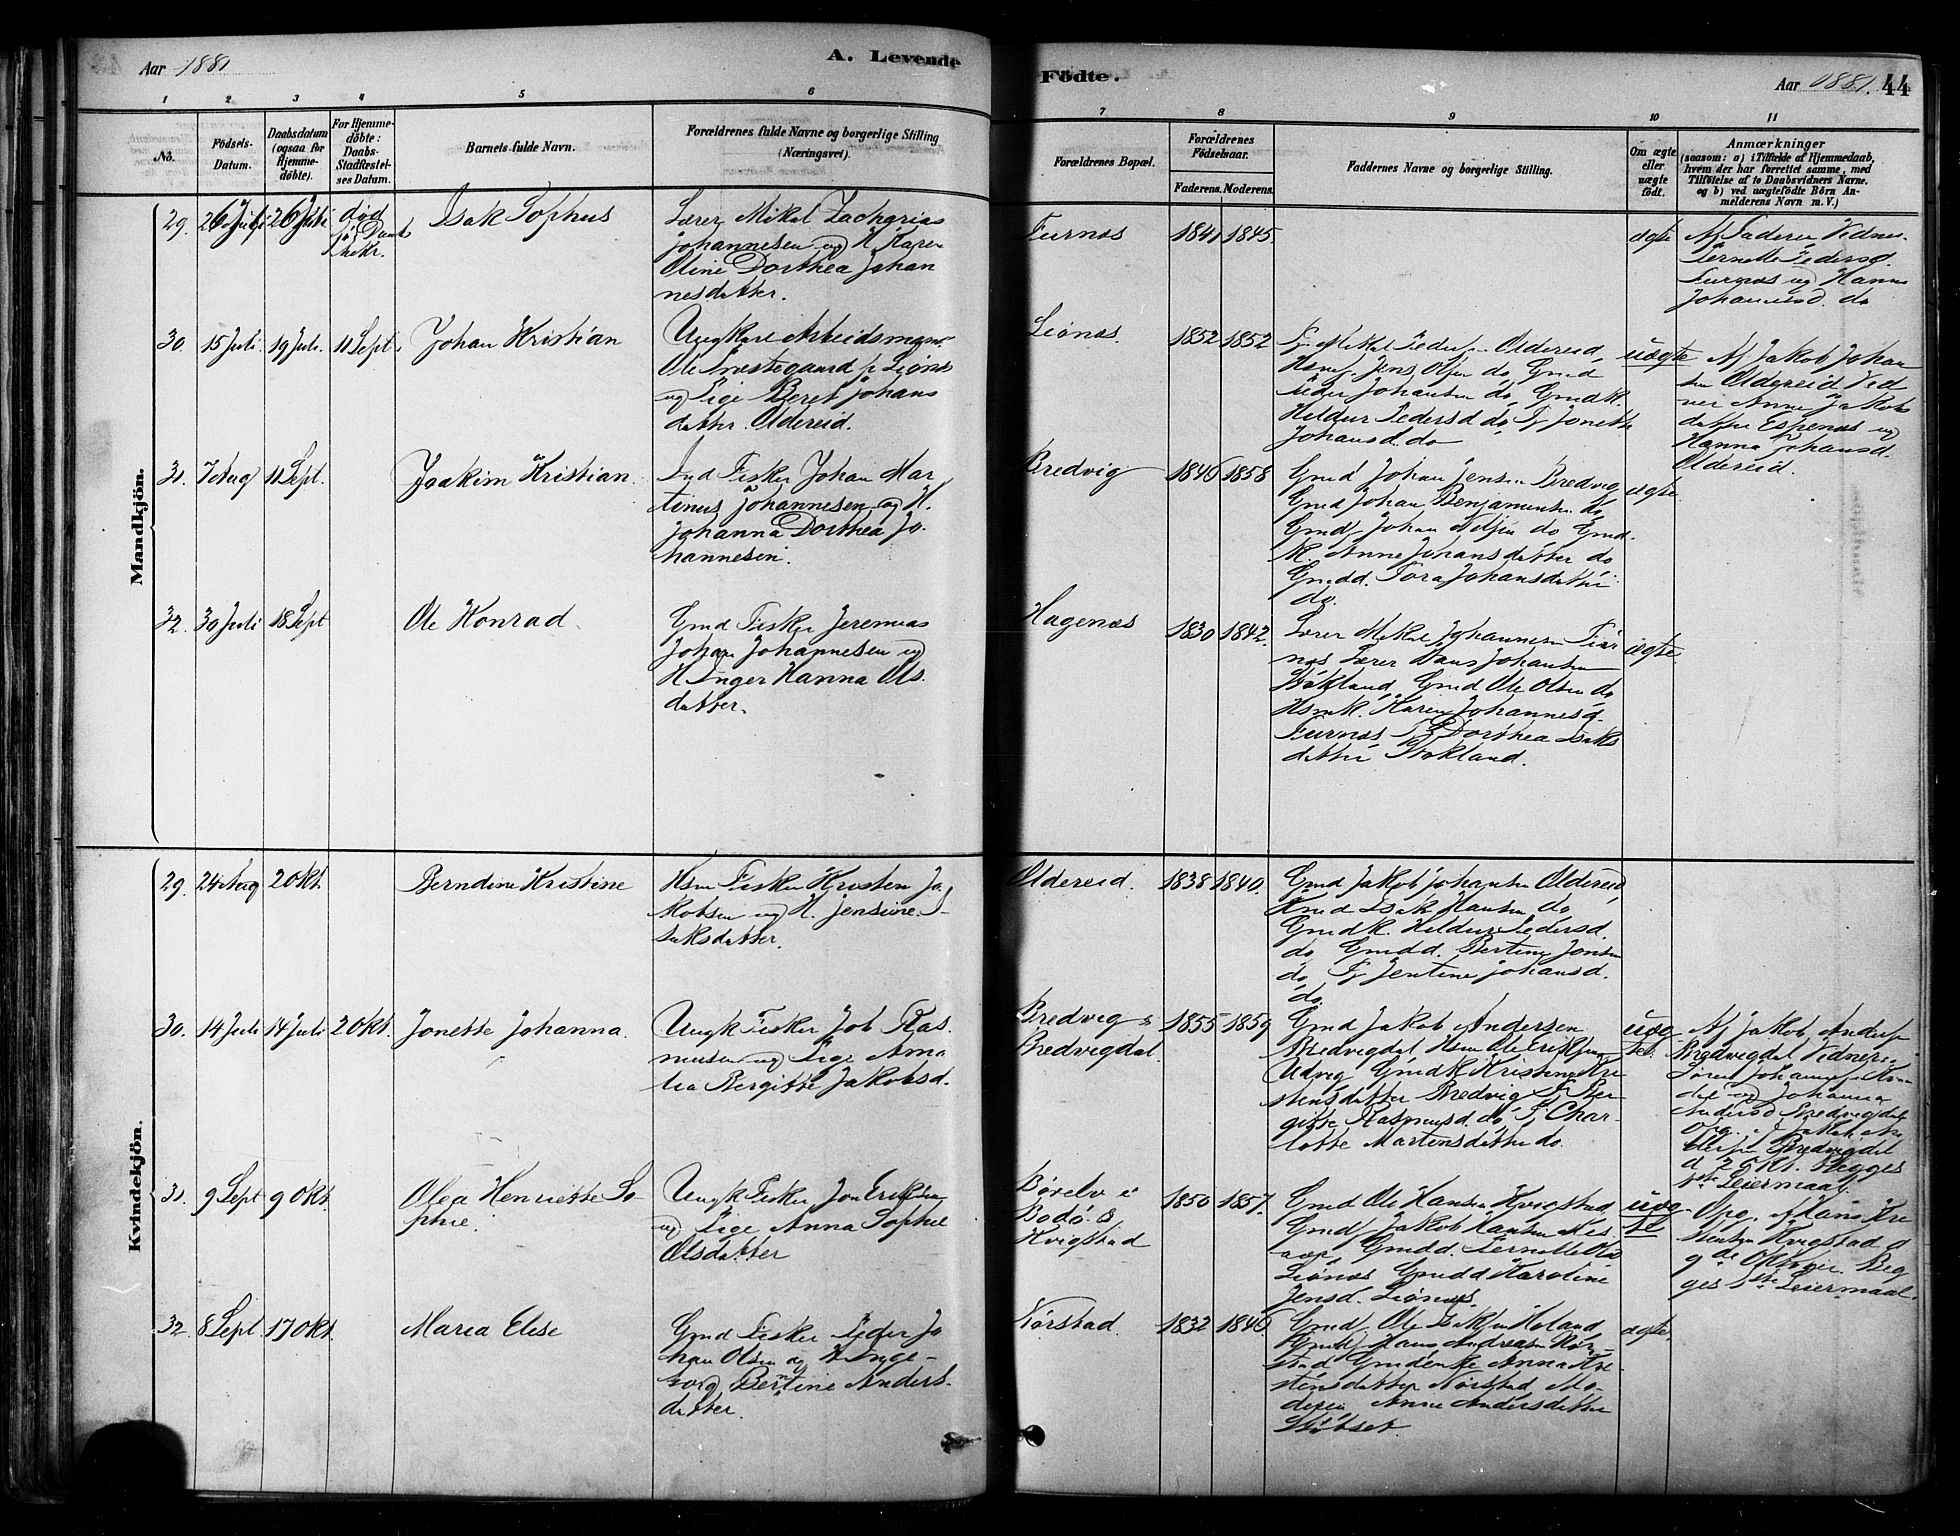 Aar 1881
A. Levende
Födte.
Aar 1881.
44
1 2 3 4 5 6 7 8 9 10 11
No.
Födsels-
Datum.
Daabsdatum
(ogsaa for
Hjemme-
döbte).
For Hjemme-
döbte:
Daabs-
Stadfæstel-
ses Datum.
Barnets fulde Navn.
Forældrenes fulde Navne og borgerlige Stilling
(Næringsvei).
Forældrenes Bopæl.
Forældrenes
Födselsaar.
Faderens. Moderens.
Faddernes Navne og borgerlige Stilling.
Om ægte
eller
uægte
födt.
Anmærkninger
(saasom: a) i Tilfælde af Hjemmedaab,
hvem der har forrettet samme, med
Tilföielse af to Daabsvidners Navne,
og b) ved uægtefödte Börn An-
melderens Navn m. V.)
Mandkjön.
29. 26 Juli 26 Juli død
før Daabs
bekr.
Isak Sophus
Lærer Mikal Zacharias
Johannesen og H. Karen
Oline Dorthea Johan
nesdatter.
Furnæs 1841 1845.
ægte
Af Faderen Vidner
Pernelle Pedersd.
Furnæs og Hanna
Johannesd. do
30. 15 Juli. 19 Juli. 11 Sept.
Johan Kristian
Ungkarl Arbeidsmand
Ole Præstegaard p Leinæs
og Pige Beret Johans
datter. Oldereid.
Leinæs. 1852 1852
Oldereid,
Jens Olsen do, Gmd
Peder Johansen do, Gmdk.
Heldur Pedersd do, Pg Jonette
Johansd. do
uægte
Af Jakob Johan
sen Oldereid Vid
ner Anne Jakobs
datter Espenæs og
Hanna Johansd.
Oldereid.
31. 7 Aug 11 Sept.
Joakim Kristian
Ind Fisker Johan Mar
tinus Johannesen og H.
Johanna Dorthea Jo
hannesen.
Bredvig 1846 1858
Gmd Johan Jensen Bredvig
Gmd Johan Benjaminsen do
Gmd, Johan do Gmd.
K. Anne Johansdatter do
Gmdd. Tora Johansdatter
do.
ægte.
32. 30 Juli 18 Sept
Ole Konrad
Gmd Fisker Jeremias
Johan Johannesen og
H Inger Hanna Ols.
datter.
Hagenæs 1830 1842.
Lærer Mikal Johannesen Fur
næs Lærer Hans Johansen
Stokland, Gmd Ole Olsen do
Hsmk. Karen Johannesd.
Furnæs Pg Dorthea Isaks
datter Stokland.
ægte.
Kvindekjön.
29. 24 Aug 2 Okt.
Berndine Kristine
Hsm Fisker Kristen Ja
kobsen og H. Jensine I-
saksdatter.
Oldereid. 1838 1840.
Gmd Jakob Johansen Oldereid,
Gmd Isak Hansen do
Gmdk. Heldur Pedersd.
do Gmdd. Bertine Jonsen
do, Pg Jentine Johansd.
do.
30. 14 Juli 14 Juli 2 Okt.
Jonette Johanna
Ungk Fisker Job Ras
musen og Pige Ama
lia Bergitte Jakobsd.
Bredvig &
Bredvigdal. 1855 1859
Gmd Jakob Andersen
Bredvigdal Hsm Ole Eriksen
Udvig Gmdk Kristine Kri
stensdatter Bredvig Pg Ber
gitte Rasmusd. do, Pg Char
lotte Martensdatter do.
uæg
te.
Af Jakob Anders
Bredvigdal Vidner:
Søren Johannesen
og Johanna
Andersd Bredvigdal
Opg. af Jakob An
dersen Bredvigdal
d 2 Okt. Begges
1ste Leiermaal.
31. 9 Sept 9 Okt.
Olea Henriette So
phie.
Ungk Fisker Jon Eriksen
og Pige Anna Sophie
Olsdatter
Børelv i
Bodø &
Kvigstad 1850 1857.
Gmd Ole Hansen Kvigstad
Gmd Jakob Hansen
Gmdd. Pernelle Olsd
Leinæs Gmdd Karoline
Jensd. Leinæs.
uæg
te
Opg. af Hans Kri
stensen Kvigstad d
9de Oktober. Beg
ges 1ste Leiermaal.
32. 8 Sept 17 Okt.
Maria Elise
Gmd Fisker Peder Jo
han Olsen og H Inge-
borg Bertine Anders
datter.
Nørstad. 1832 1846
Gmd. Ole Høland
Gmd Hans Andreasen Nør
stad Gmdenke Anna Kri
stensdatter Nørstad Mo
deren Anne Andersdatter
ægte.